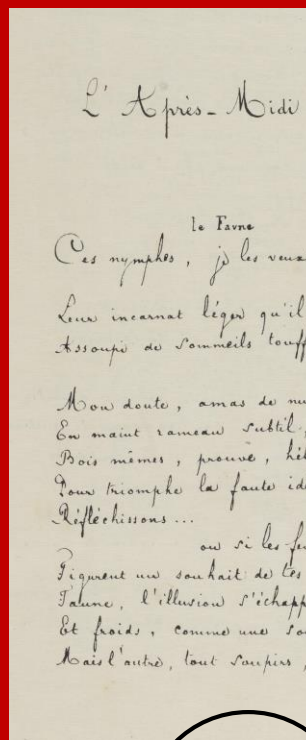 L'Après-Midi
le Favne
Ces nymphes, je les veux
Leur incarnat léger qu'il
Assoupi de sommeils touff
Mon doute, amas de nu
En maint rameau subtil,
Bois mêmes, prouve, hél
Pour triomphe la faute idé
Réfléchissons...
ou si les fe
Figurent un souhait de tes
Faune, l'illusion s'échapp
Et froids, comme une so
Mais l'autre, tout soupirs,